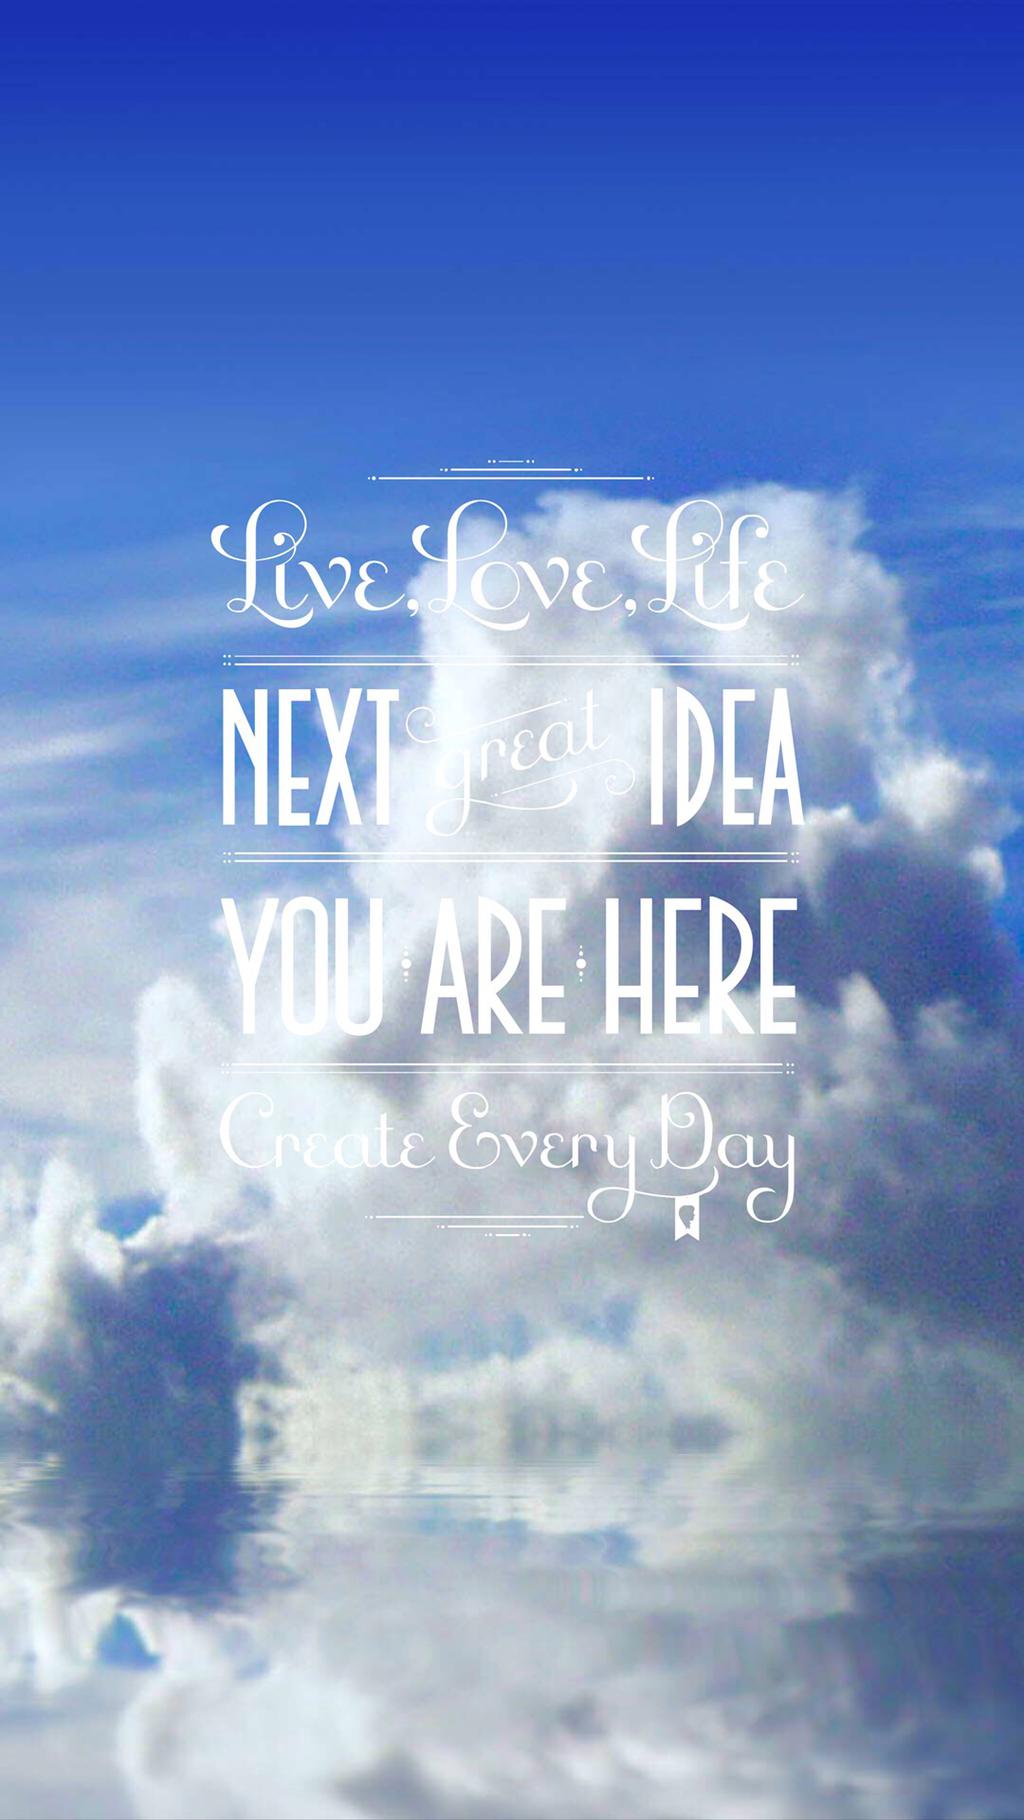 Live, Love, Life
NEXT great IDEA
YOU ARE HERE
Create Every Day